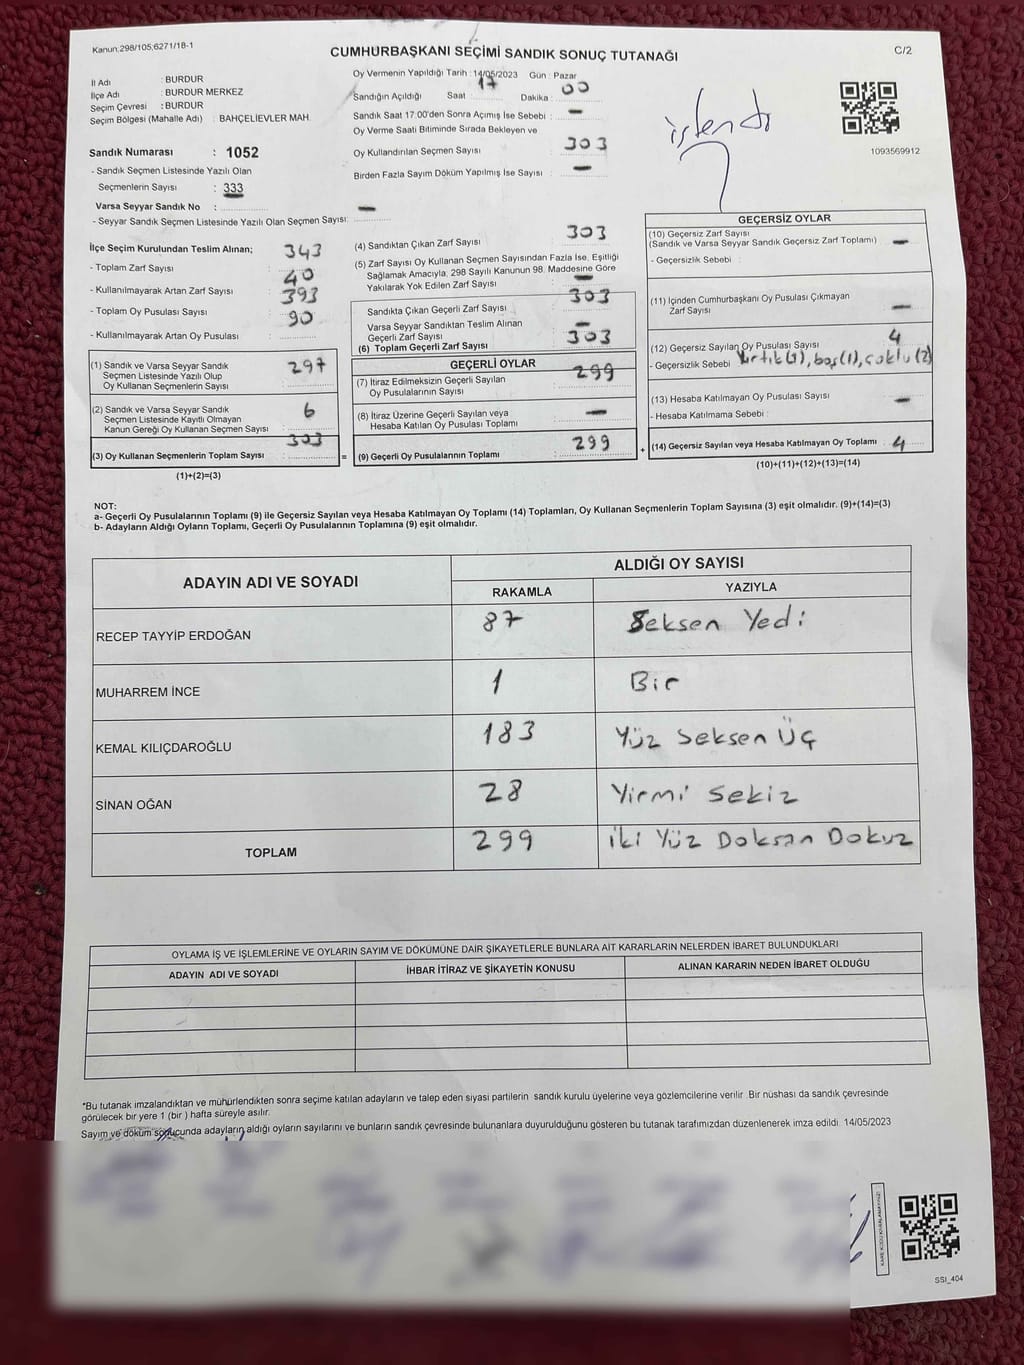 Kanun;298/105;6271/18-1
CUMHURBAŞKANI SEÇİMİ SANDIK SONUÇ TUTANAĞI
C/2
İl Adı : BURDUR
İlçe Adı : BURDUR MERKEZ
Seçim Çevresi : BURDUR
Seçim Bölgesi (Mahalle Adı) : BAHÇELİEVLER MAH.
Sandık Numarası : 1052
- Sandık Seçmen Listesinde Yazılı Olan
Seçmenlerin Sayısı : 333
Varsa Seyyar Sandık No : —
- Seyyar Sandık Seçmen Listesinde Yazılı Olan Seçmen Sayısı:
Oy Vermenin Yapıldığı Tarih : 14/05/2023 Gün : Pazar
Sandığın Açıldığı Saat : 17 Dakika : 00
Sandık Saat 17:00'den Sonra Açımış İse Sebebi : —
Oy Verme Saati Bitiminde Sırada Bekleyen ve
Oy Kullandırılan Seçmen Sayısı : 303
Birden Fazla Sayım Döküm Yapılmış İse Sayısı : —
işlendi
1093569912
İlçe Seçim Kurulundan Teslim Alınan;
- Toplam Zarf Sayısı : 343
- Kullanılmayarak Artan Zarf Sayısı : 40
- Toplam Oy Pusulası Sayısı : 393
- Kullanılmayarak Artan Oy Pusulası : 90
(1) Sandık ve Varsa Seyyar Sandık
Seçmen Listesinde Yazılı Olup
Oy Kullanan Seçmenlerin Sayısı : 297
(2) Sandık ve Varsa Seyyar Sandık
Seçmen Listesinde Kayıtlı Olmayan
Kanun Gereği Oy Kullanan Seçmen Sayısı : 6
(3) Oy Kullanan Seçmenlerin Toplam Sayısı : 303
(1)+(2)=(3)
(4) Sandıktan Çıkan Zarf Sayısı : 303
(5) Zarf Sayısı Oy Kullanan Seçmen Sayısından Fazla İse, Eşitliği
Sağlamak Amacıyla, 298 Sayılı Kanunun 98. Maddesine Göre
Yakılarak Yok Edilen Zarf Sayısı : —
Sandıkta Çıkan Geçerli Zarf Sayısı : 303
Varsa Seyyar Sandıktan Teslim Alınan
Geçerli Zarf Sayısı : —
(6) Toplam Geçerli Zarf Sayısı : 303
GEÇERLİ OYLAR
(7) İtiraz Edilmeksizin Geçerli Sayılan
Oy Pusulalarının Sayısı : 299
(8) İtiraz Üzerine Geçerli Sayılan veya
Hesaba Katılan Oy Pusulası Toplamı : —
= (9) Geçerli Oy Pusulalarının Toplamı : 299
GEÇERSİZ OYLAR
(10) Geçersiz Zarf Sayısı
(Sandık ve Varsa Seyyar Sandık Geçersiz Zarf Toplamı) : —
- Geçersizlik Sebebi :
(11) İçinden Cumhurbaşkanı Oy Pusulası Çıkmayan
Zarf Sayısı : —
(12) Geçersiz Sayılan Oy Pusulası Sayısı : 4
- Geçersizlik Sebebi : Yırtık(1), boş(1), çoklu(2)
(13) Hesaba Katılmayan Oy Pusulası Sayısı : —
- Hesaba Katılmama Sebebi :
+ (14) Geçersiz Sayılan veya Hesaba Katılmayan Oy Toplamı : 4
(10)+(11)+(12)+(13)=(14)
NOT:
a- Geçerli Oy Pusulalarının Toplamı (9) ile Geçersiz Sayılan veya Hesaba Katılmayan Oy Toplamı (14) Toplamları, Oy Kullanan Seçmenlerin Toplam Sayısına (3) eşit olmalıdır. (9)+(14)=(3)
b- Adayların Aldığı Oyların Toplamı, Geçerli Oy Pusulalarının Toplamına (9) eşit olmalıdır.
ADAYIN ADI VE SOYADI
ALDIĞI OY SAYISI
RAKAMLA YAZIYLA
RECEP TAYYİP ERDOĞAN 87 Seksen Yedi
MUHARREM İNCE 1 Bir
KEMAL KILIÇDAROĞLU 183 Yüz Seksen Üç
SİNAN OĞAN 28 Yirmi Sekiz
TOPLAM 299 iki Yüz Doksan Dokuz
OYLAMA İŞ VE İŞLEMLERİNE VE OYLARIN SAYIM VE DÖKÜMÜNE DAİR ŞİKAYETLERLE BUNLARA AİT KARARLARIN NELERDEN İBARET BULUNDUKLARI
ADAYIN ADI VE SOYADI İHBAR İTİRAZ VE ŞİKAYETİN KONUSU ALINAN KARARIN NEDEN İBARET OLDUĞU
*Bu tutanak imzalandıktan ve mühürlendikten sonra seçime katılan adayların ve talep eden siyasi partilerin sandık kurulu üyelerine veya gözlemcilerine verilir. Bir nüshası da sandık çevresinde
görülecek bir yere 1 (bir ) hafta süreyle asılır.
Sayım ve döküm sonucunda adayların aldığı oyların sayılarını ve bunların sandık çevresinde bulunanlara duyurulduğunu gösteren bu tutanak tarafımızdan düzenlenerek imza edildi. 14/05/2023
KARE KODU KARALAMAYINIZ!
SSI_404